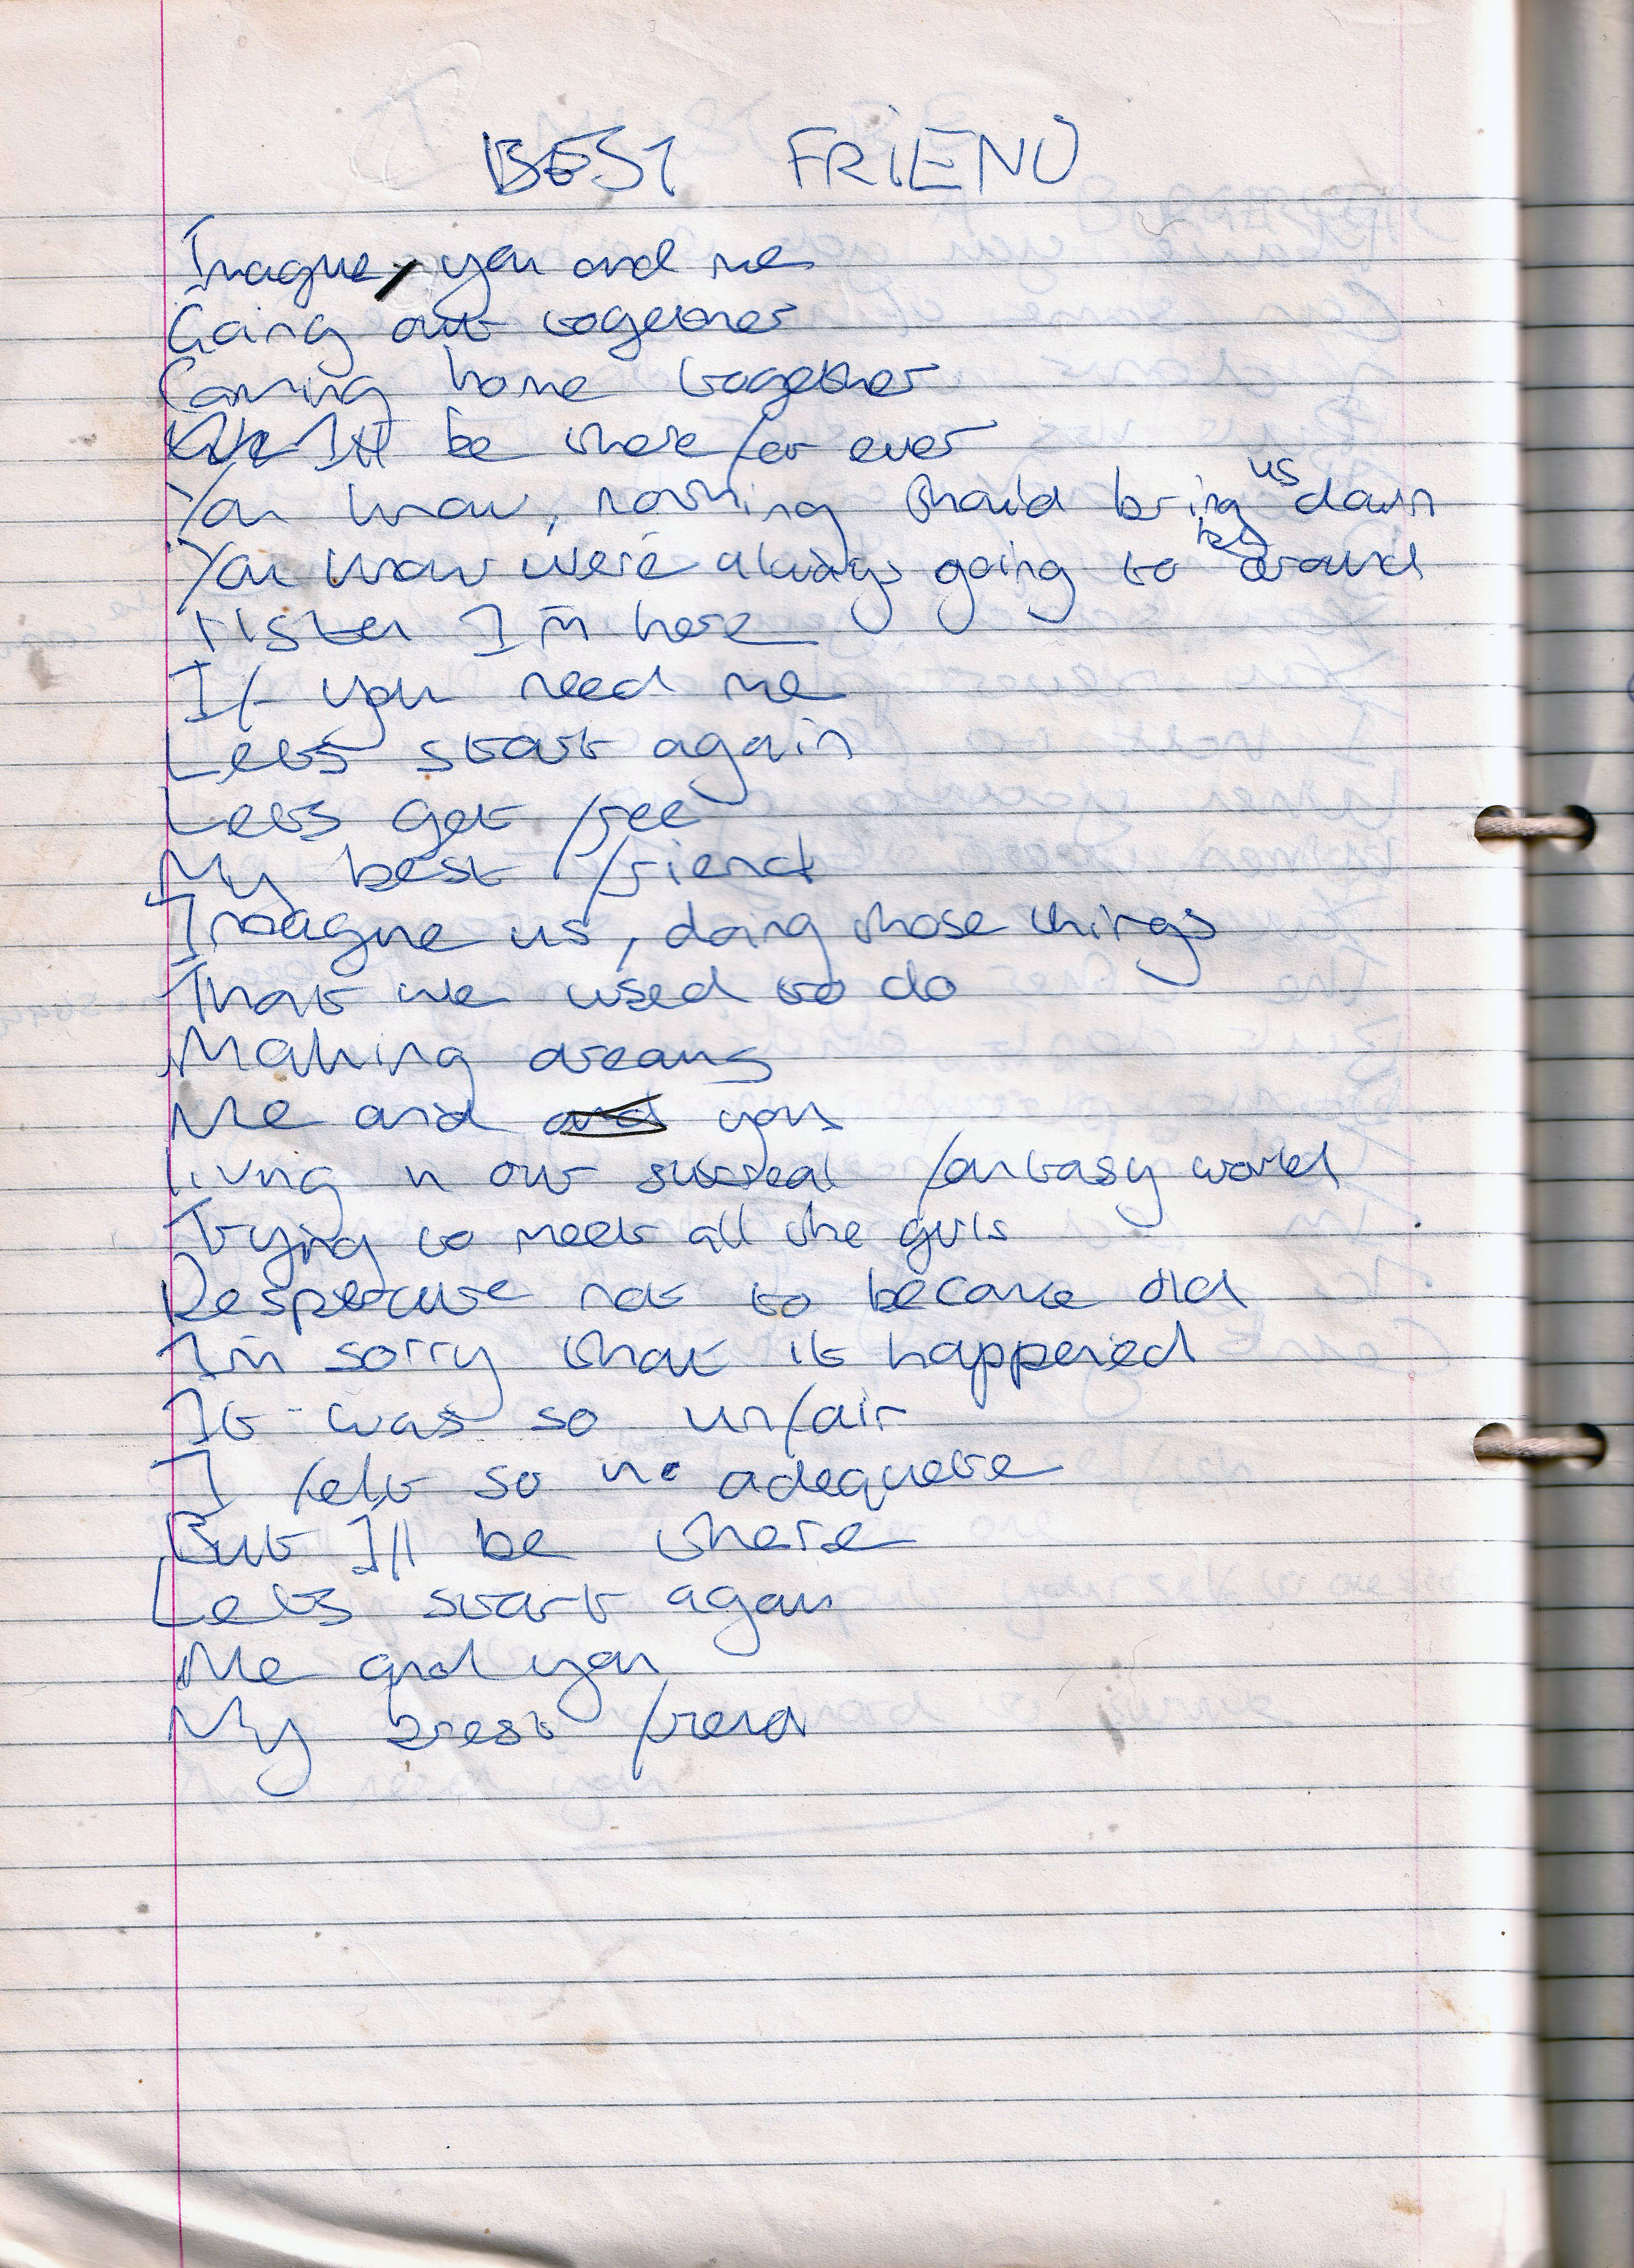 BEST FRIEND
Imagne, you and me
Going out together
Coming home together
I'll be there for ever
You know, nothing should bring us down
You know we're always going to be around
Listen I'm here
If you need me
Lets start again
Lets get free
My best friend
Imagne us, doing those things
That we used to do
Making dreams
Me and and you
living in our surreal fantasy world
Trying to meet all the girls
Desperate not to become old
I'm sorry that it happened
It was so unfair
I felt so adequate
But I'll be there
Lets start again
Me and you
My brest friend